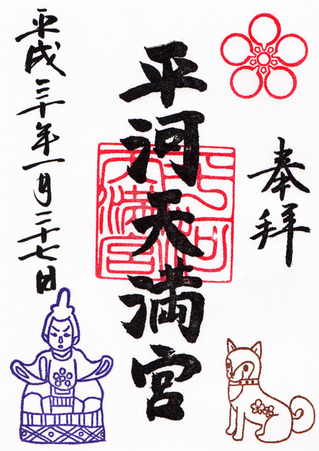 奉拝
平河天満宮
平河天満宮
平成三十年一月二十七日